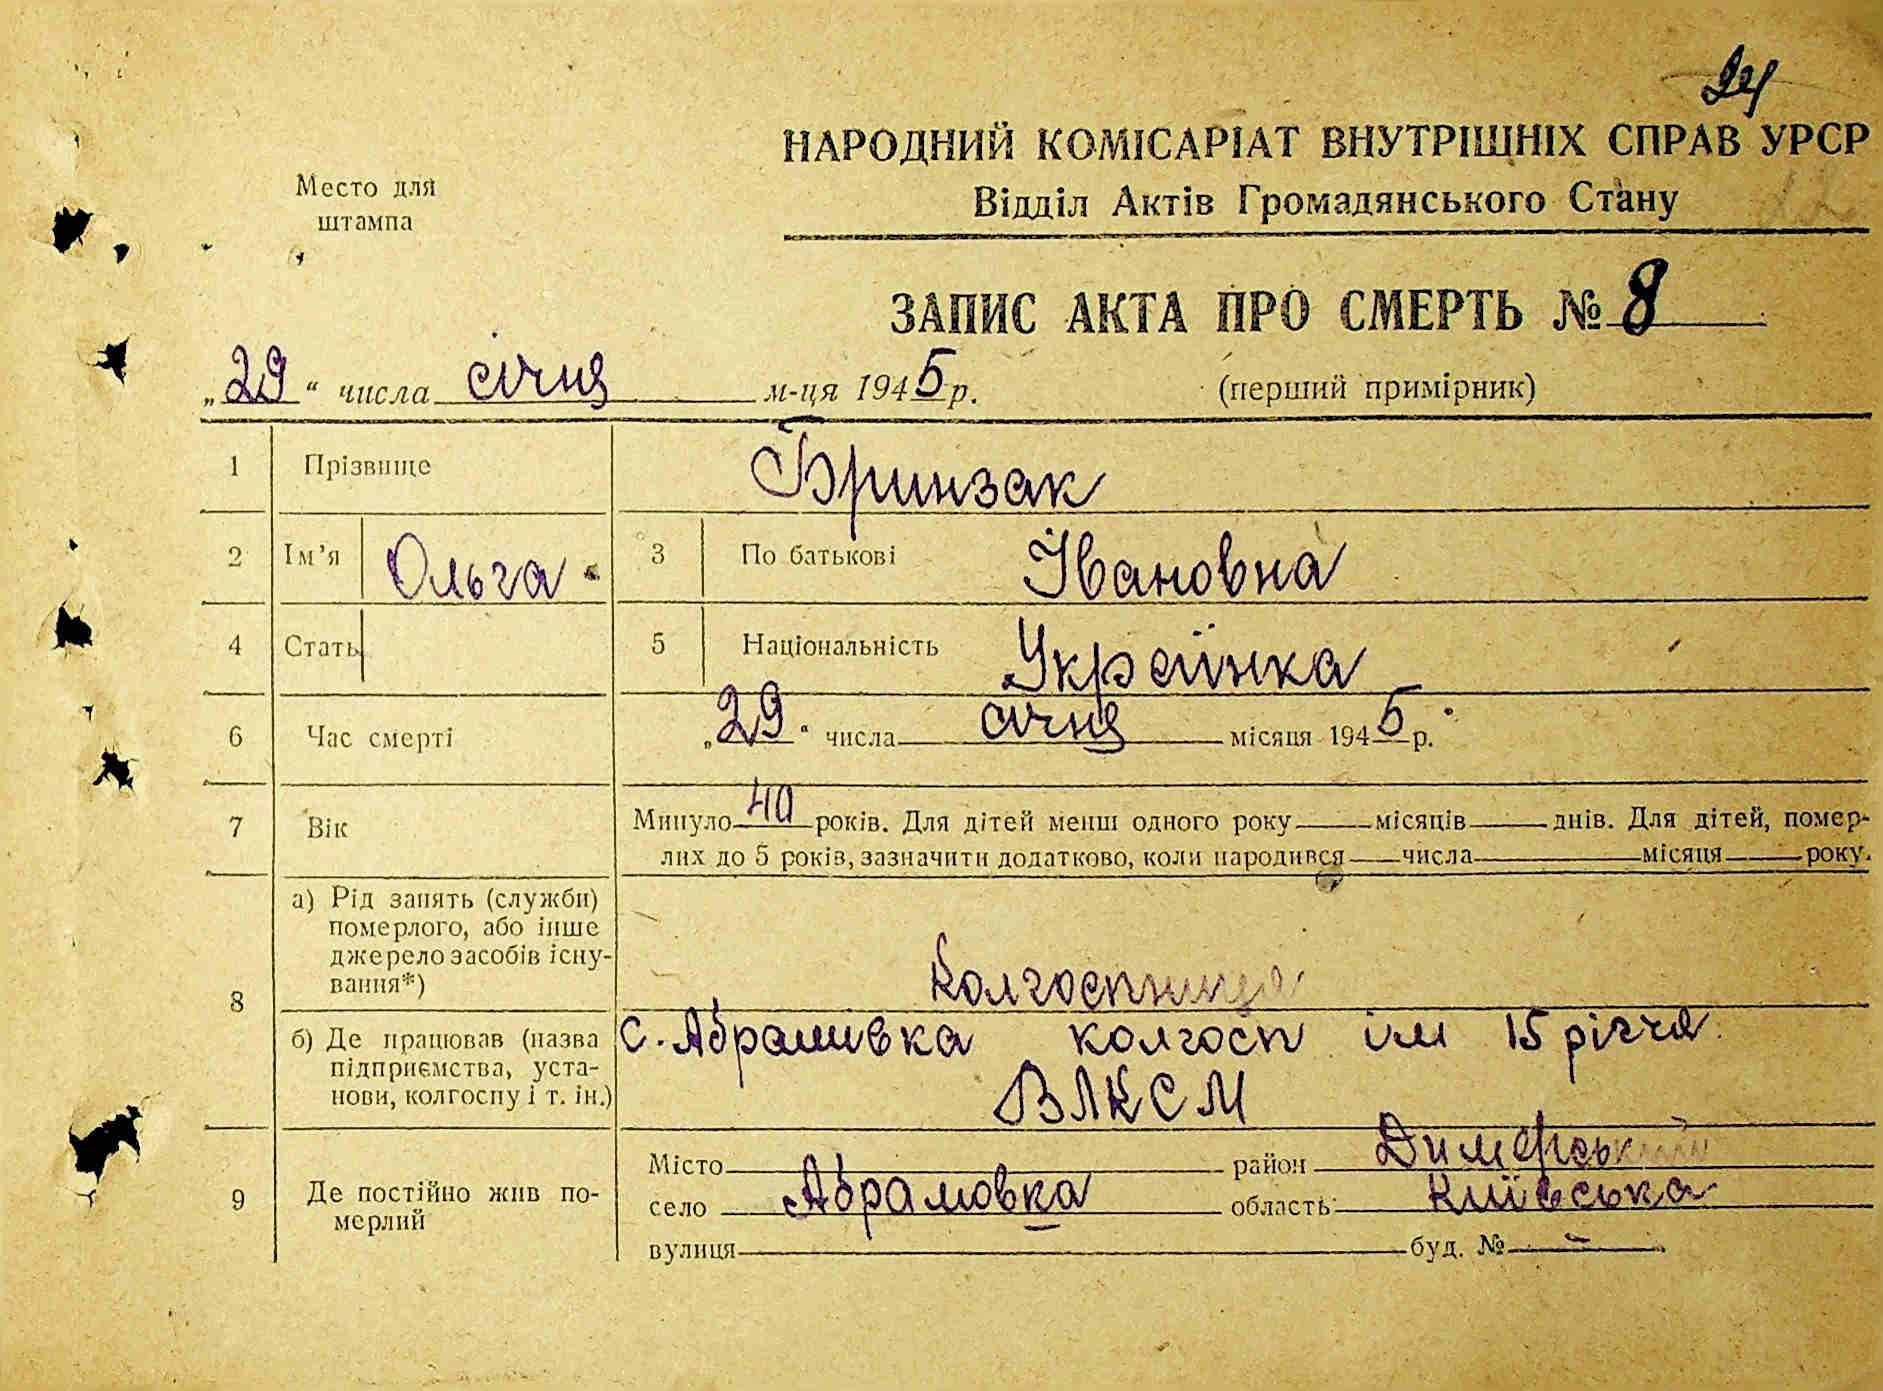 24
НАРОДНИЙ КОМІСАРІАТ ВНУТРІШНІХ СПРАВ УРСР
Відділ Актів Громадянського Стану
Место для
штампа
ЗАПИС АКТА ПРО СМЕРТЬ № 8
„29“ числа січня м-ця 1945 р.
(перший примірник)
1 Прізвище Бринзак
2 Ім’я Ольга 3 По батькові Івановна
4 Стать 5 Національність Українка
6 Час смерті „29“ числа січня місяця 1945 р.
7 Вік Минуло 40 років. Для дітей менш одного року місяців днів. Для дітей, помер-
лих до 5 років, зазначити додатково, коли народився числа місяця року.
8 а) Рід занять (служби)
померлого, або інше
джерело засобів існу-
вання*)
Колгоспниця
б) Де працював (назва
підприємства, уста-
нови, колгоспу і т. ін.)
с. Абрамівка колгосп ім 15 річчя
ВЛКСМ
9 Де постійно жив по-
мерлий
Місто район Димерський
село Абрамовка область Київська
вулиця буд. № -